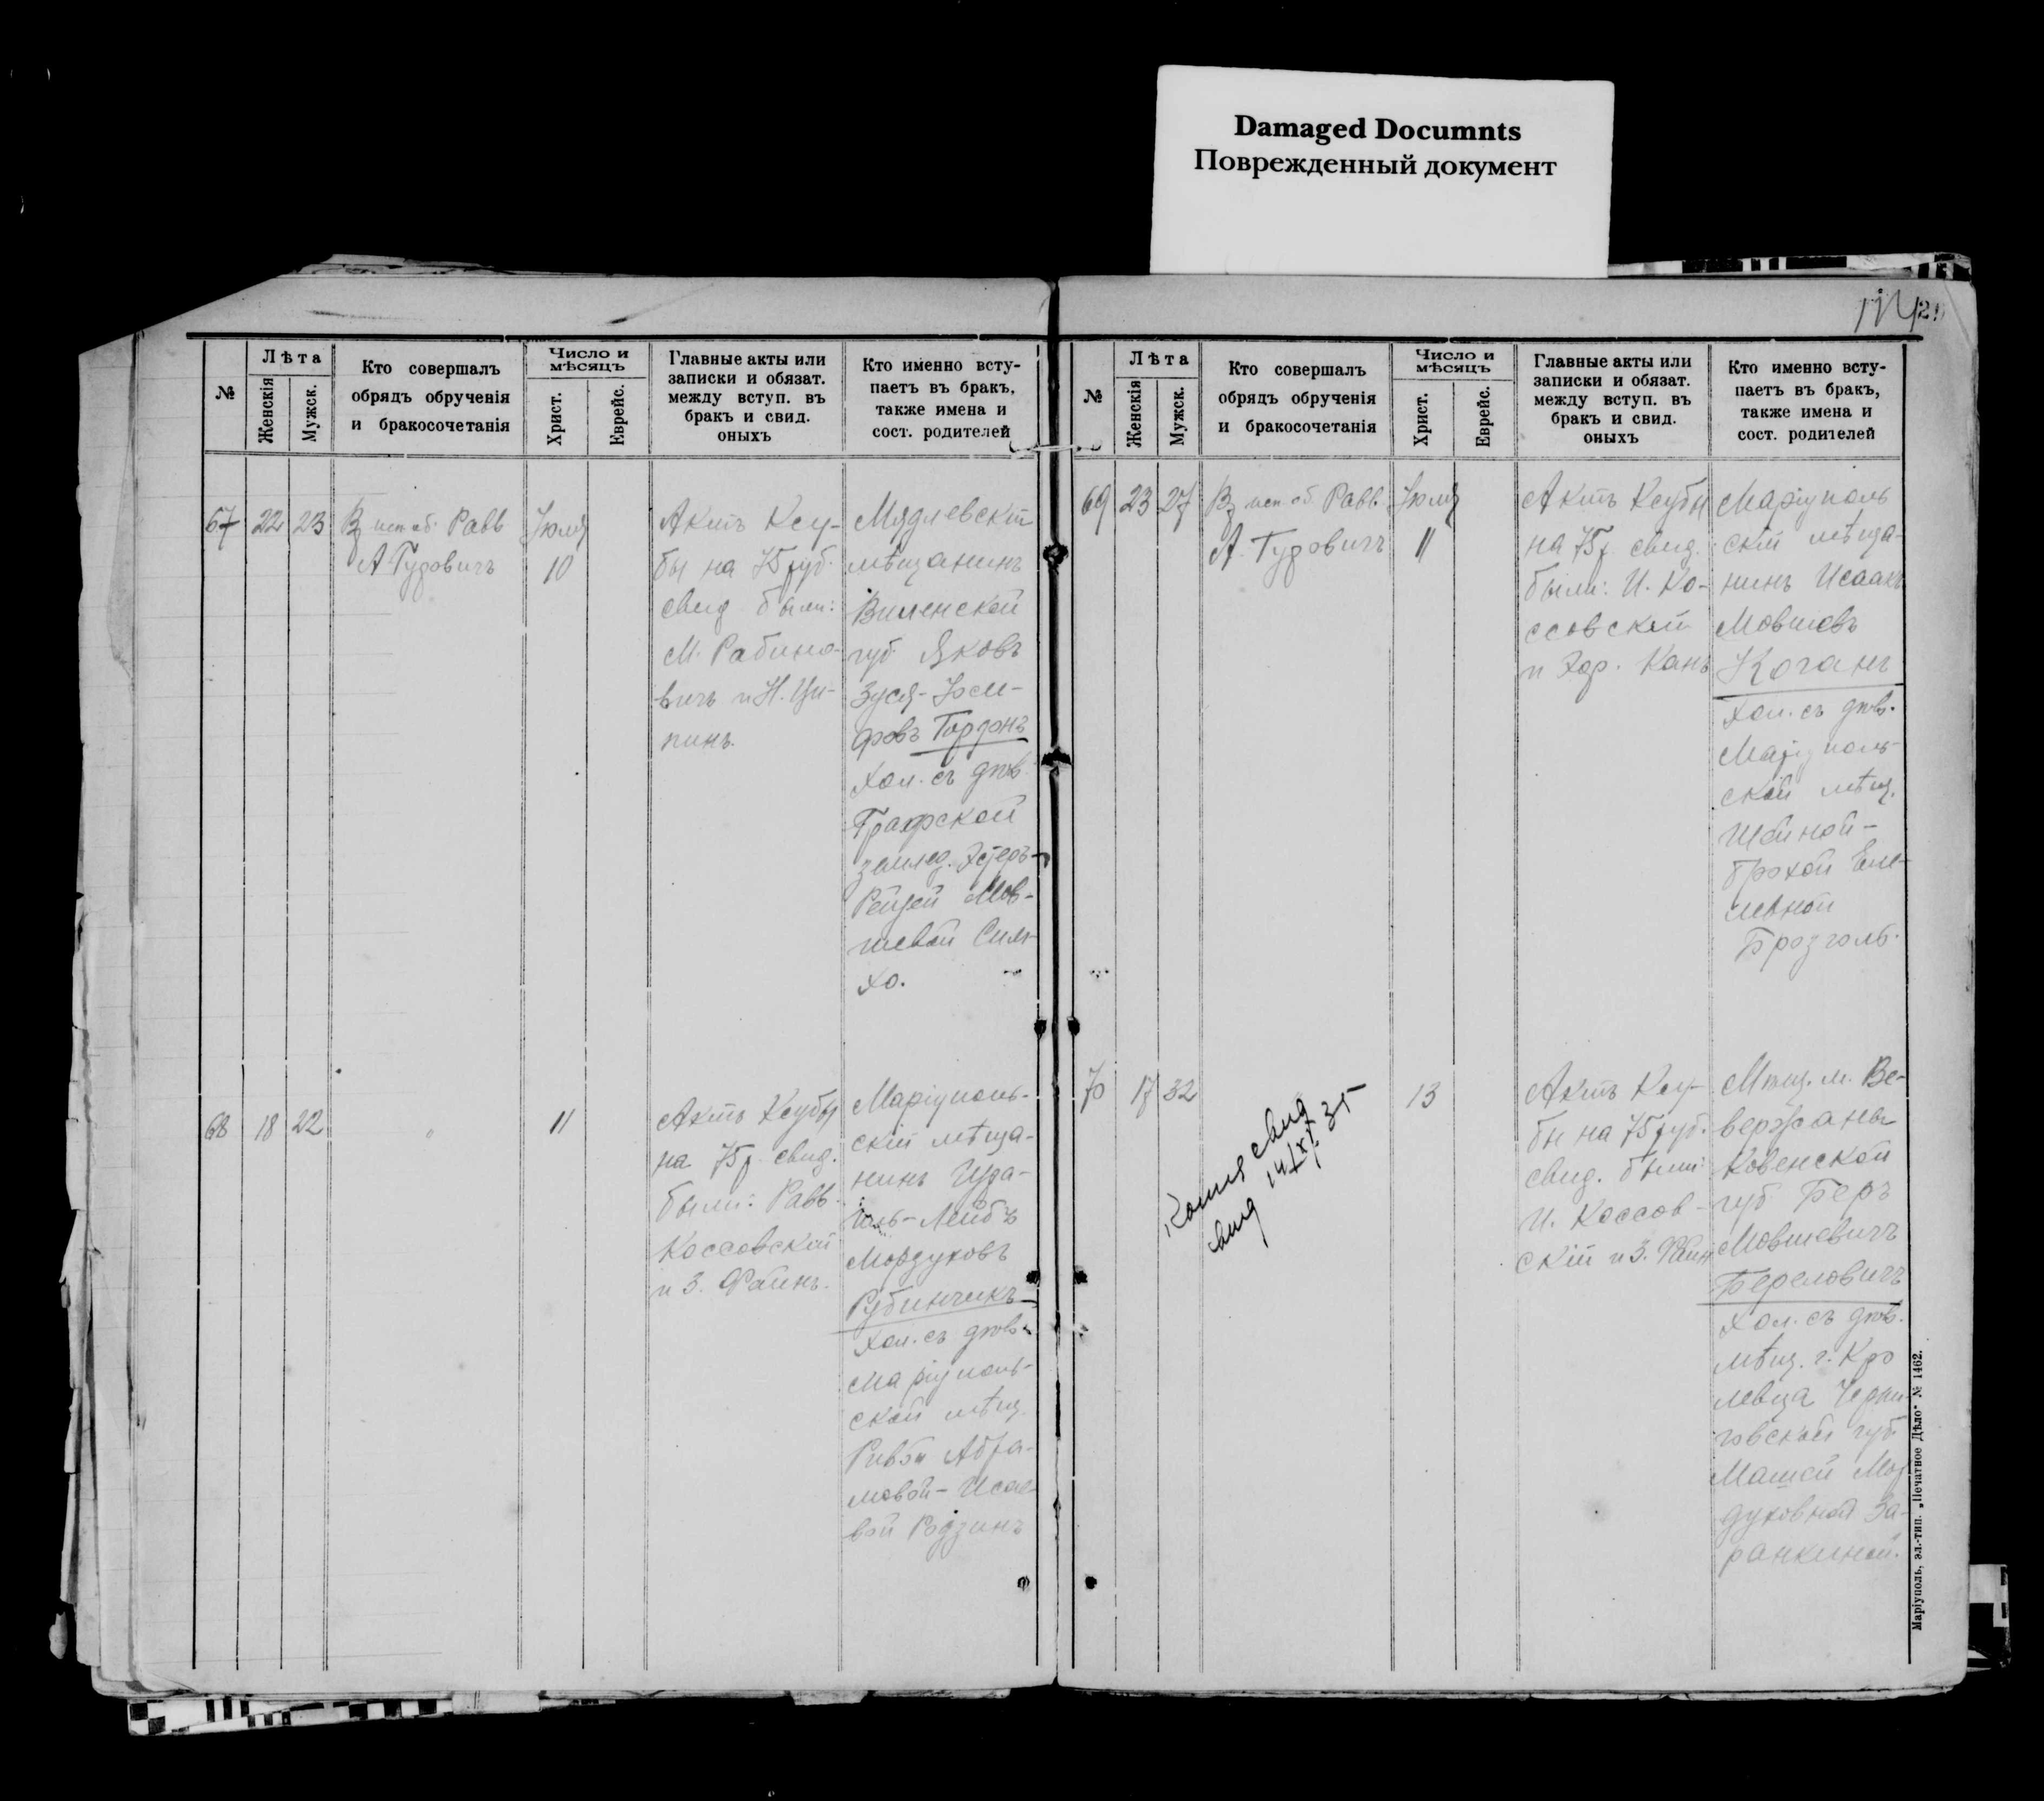 Damaged Documnts
Поврежденный документ
21
№
Лѣта
Женскія
Мужск.
Кто совершалъ
обрядъ обрученія
и бракосочетанія
Число и
мѣсяцъ
Христ.
Еврейс.
Главные акты или
записки и обязат.
между вступ. въ
бракъ и свид.
оныхъ
Кто именно всту-
паетъ въ бракъ,
также имена и
сост. родителей
67
22
23
Раввъ
А Гуровичъ
Іюля
10
Актъ Ксу-
бы на 75 руб.
свид были:
М. Рабино-
вичъ и Н. Ци-
пинъ.
Мядлевскій
мѣщанинъ
Виленской
губ Яковъ
Зуся-Іосе-
фовъ Гордонъ
хол. съ дѣв.
Графской
землед. Эстеръ-
Рейзей Мов-
шевой Силь-
хо.
68
18
22
"
11
Актъ Ксубы
на 75 р. свид.
были: Равв.
Коссовскій
и З. Файнъ.
Маріуполь-
скій мѣща-
нинъ Изра-
иль-Лейбъ
Мордуховъ
Рубинчикъ
хол. съ дѣв.
Маріуполь-
ской мѣщ.
Ривой Абра-
мовой-Исае-
вой Родзинъ
№
Лѣта
Женскія
Мужск.
Кто совершалъ
обрядъ обрученія
и бракосочетанія
Число и
мѣсяцъ
Христ.
Еврейс.
Главные акты или
записки и обязат.
между вступ. въ
бракъ и свид.
оныхъ
Кто именно всту-
паетъ въ бракъ,
также имена и
сост. родителей
69
23
27
Равв.
А. Гуровичъ
Іюля
11
Актъ Ксубы
на 75 р. свид.
были: И. Ко-
ссовскій
и Канъ
Маріуполь
скій мѣща-
нинъ Исаакъ
Мовшовъ
Коганъ
хол. съ дѣв.
Маріуполь-
ской мѣщ.
Шейной-
Брохой
Брозголь.
70
17
32
Копия свид
выд 14/XI 35
13
Актъ Ксу-
бы на 75 руб.
свид. были:
И. Коссов-
скій и З. Файнъ
Мѣщ. м. Ве-
вержаны
Ковенской
губ Беръ
Мовшевичъ
Береловичъ
хол. съ дѣв.
мѣщ. г. Кро
левца Черни-
говской губ
Машей Мор
духовной За-
ранкиной.
Маріуполь, эл.-тип. „Печатное Дѣло“ № 1462.